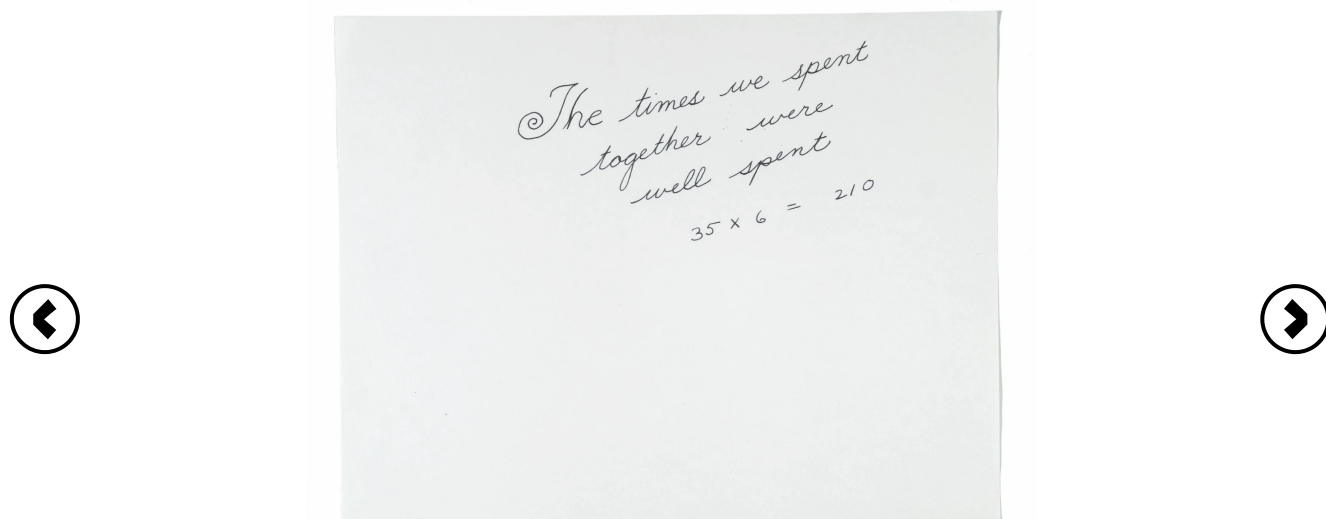 The times we spent
together were
well spent
35 x 6 = 210